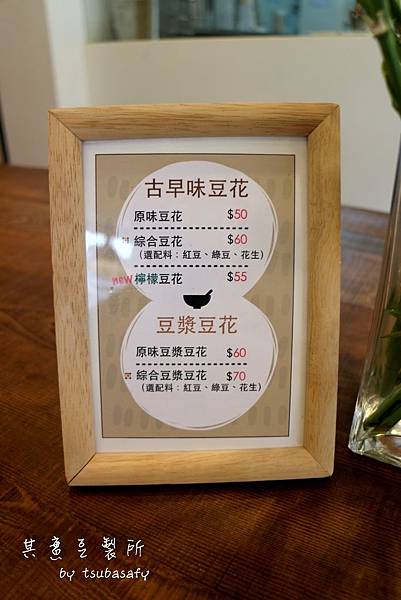 古早味豆花
原味豆花 $50
綜合豆花 $60
(選配料：紅豆、綠豆、花生)
new 檸檬豆花 $55
豆漿豆花
原味豆漿豆花 $60
綜合豆漿豆花 $70
(選配料：紅豆、綠豆、花生)
其意豆製所
by tsubasafy